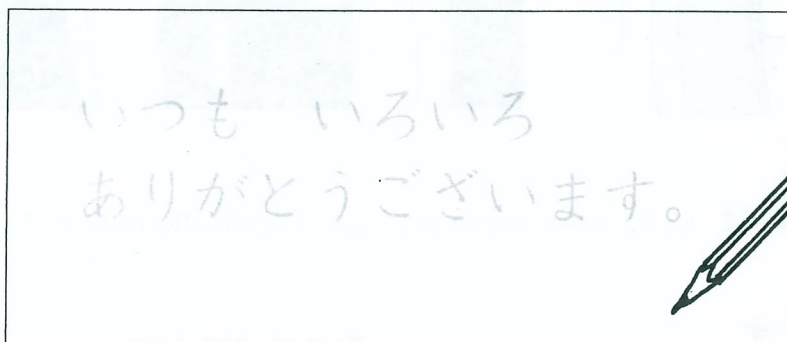 いつも　いろいろ
ありがとうございます。